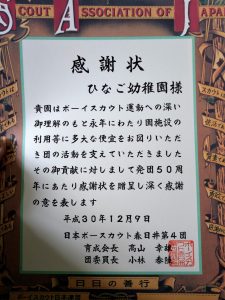 SCOUT ASSOCIATION OF JAPA
感謝状
ひなご幼稚園様
貴園はボーイスカウト運動への深い
御理解のもと永年にわたり園施設の
利用等に多大な便宜をお図りいただ
き団の活動を支えていただきました
その御貢献に対しまして発団50周
年にあたり感謝状を贈呈し深く感謝
の意を表します
平成30年12月9日
日本ボーイスカウト春日井第4団
育成会長 高山 幸
団委員長 小林 泰
日日の善行